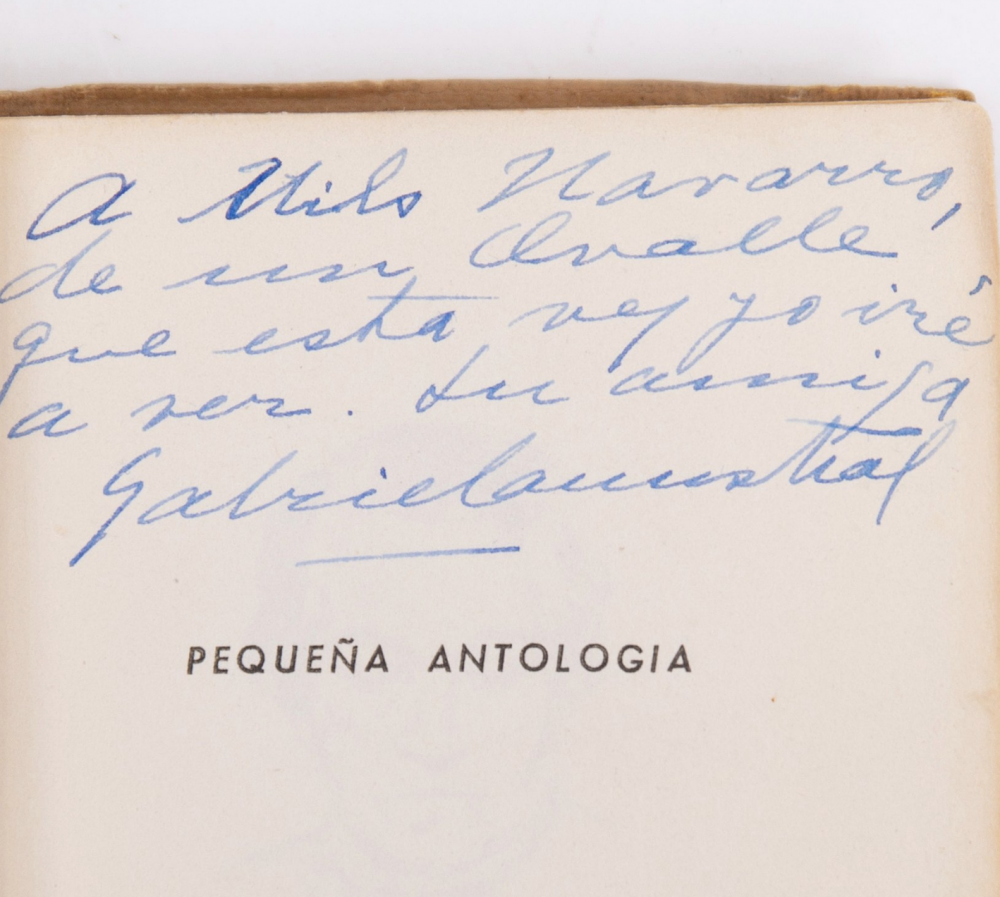 A Nilo Navarro,
de un Ovalle
que esta vez yo iré
a ver. Su amiga
Gabriela mistral
PEQUEÑA ANTOLOGIA